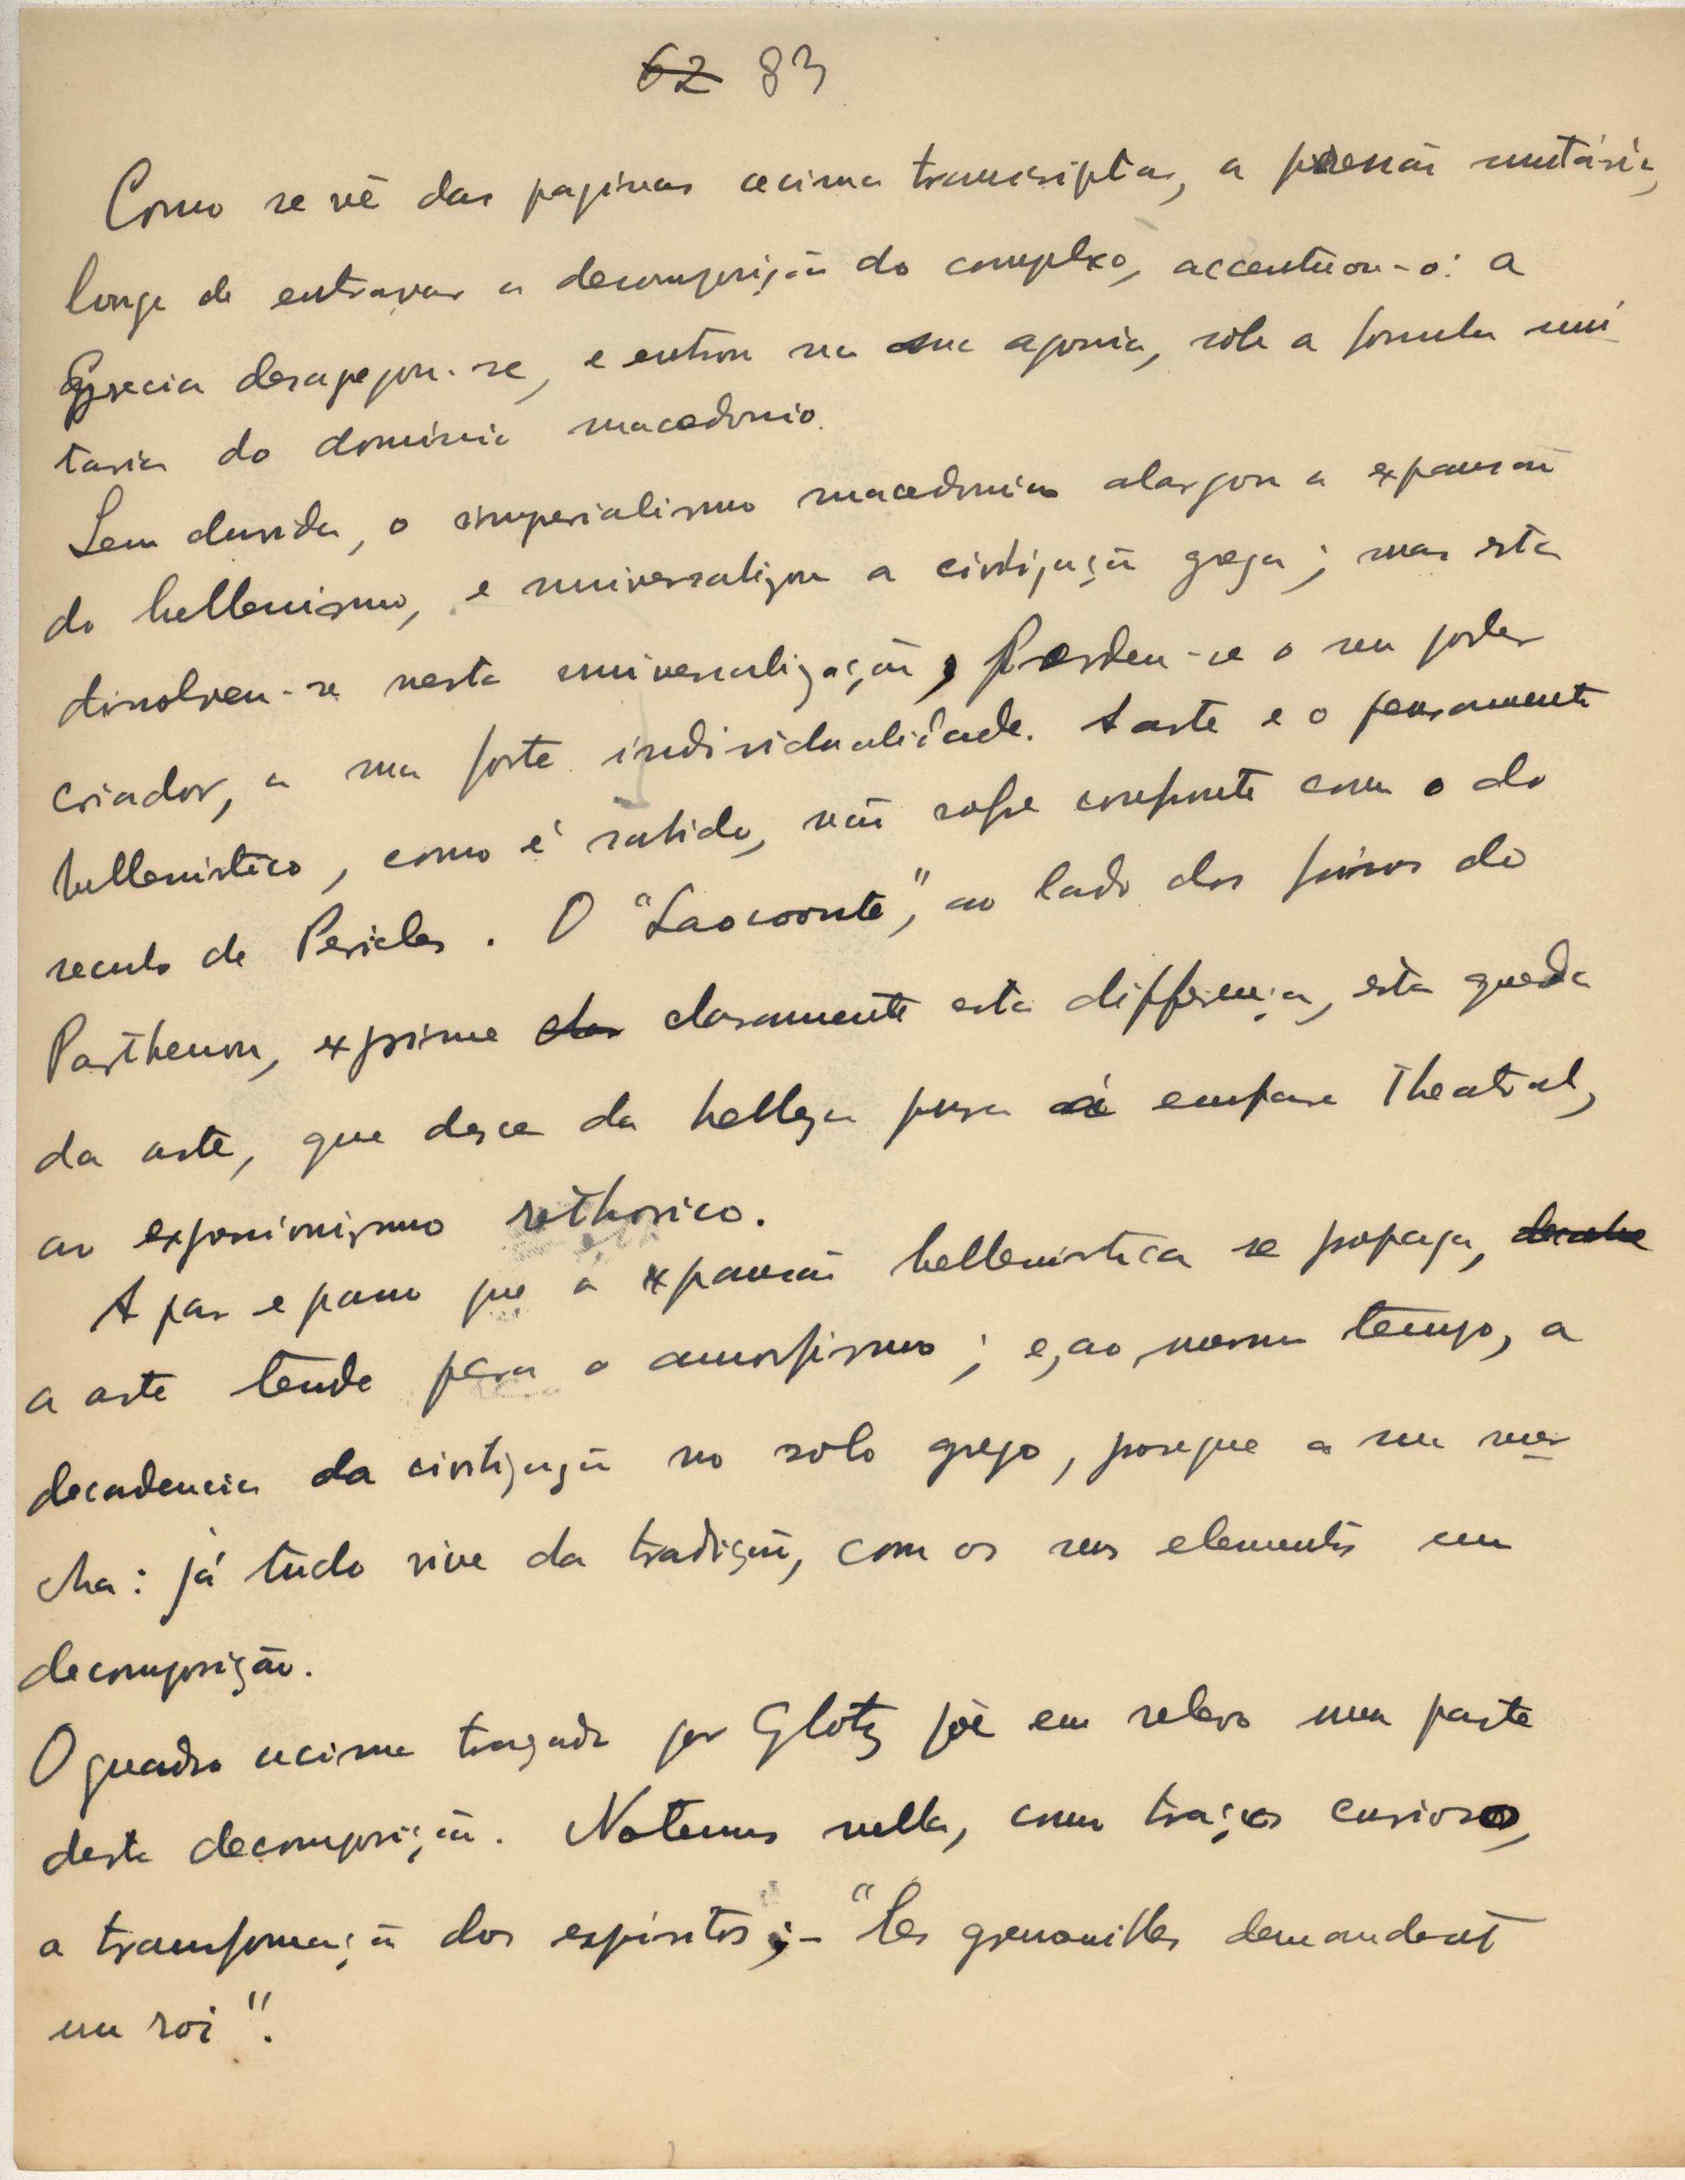 62 83
Como se vê das paginas acima transcriptas, a pressão unitária,
longe de entravar a decomposição do complexo, accentuou-o: a
Grecia desagregou-se, e entrou na sua agonia, sob a formula uni-
taria do dominio macedonio.
Sem duvida, o imperialismo macedonico alargou a expansão
do hellenismo, e universalizou a civilização grega; mas esta
dissolveu-se nesta universalização, perdeu-se o seu poder
criador, a sua forte individualidade. A arte e o pensamento
hellenistico, como é sabido, não sofre confronto com o do
seculo de Pericles. O "Laocoonte", ao lado dos frisos do
Parthenon, exprime clar claramente esta differença, esta queda
da arte, que desce da belleza pura á emfase theatral,
ao expressionismo rethorico.
A par e passo que a expansão hellenistica se propaga,
a arte tende para o amorfismo; e, ao mesmo tempo, a
decadencia da civilização no solo grego, prosegue a sua mar-
cha: já tudo vive da tradição, com os seus elementos em
decomposição.
O quadro acima traçado por Glotz põe em relevo uma parte
desta decomposição. Notemos nella, como traços curiosos,
a transformação dos espiritos; - "les grenouilles demandent
un roi".